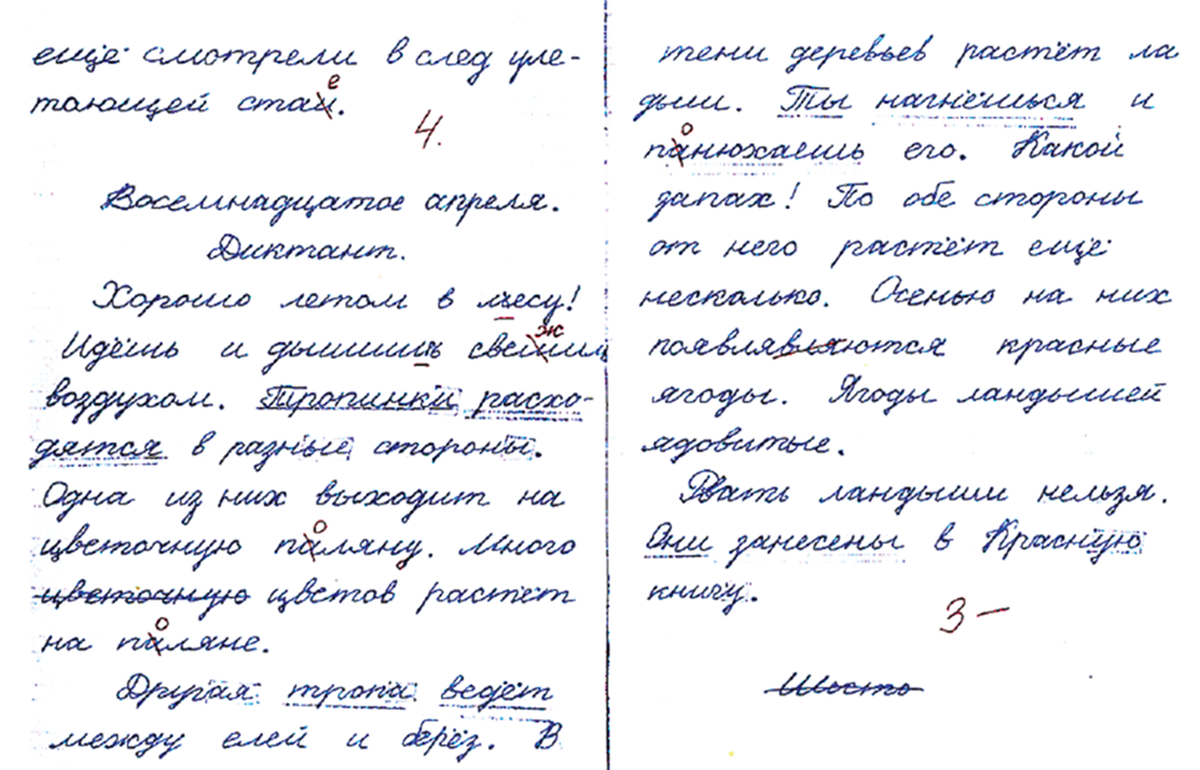 ещё смотрели в след уле-
тающей стаи.
е
4.
Восемнадцатое апреля.
Диктант.
Хорошо летом в лесу!
Идёшь и дышишь свешим
ж
воздухом. Тропинки расхо-
дятся в разные стороны.
Одна из них выходит на
о
цветочную паляну. Много
цветочную цветов растёт
о
на паляне.
Другая тропа ведёт
между елей и берёз. В
тени деревьев растёт ла
дыш. Ты нагнёшься и
о
панюхаешь его. Какой
запах! По обе стороны
от него растёт ещё
несколько. Осенью на них
появлявляются красные
ягоды. Ягоды ландышей
ядовитые.
Рвать ландыши нельзя.
Они занесены в Красную
книгу.
3 –